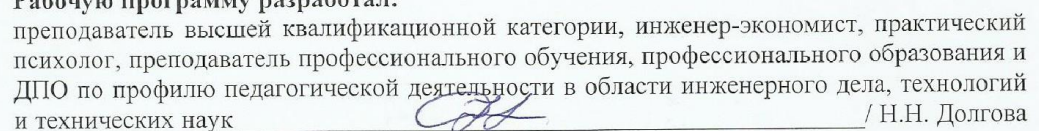 Рабочую программу разработал:
преподаватель высшей квалификационной категории, инженер-экономист, практический
психолог, преподаватель профессионального обучения, профессионального образования и
ДПО по профилю педагогической деятельности в области инженерного дела, технологий
и технических наук / Н.Н. Долгова